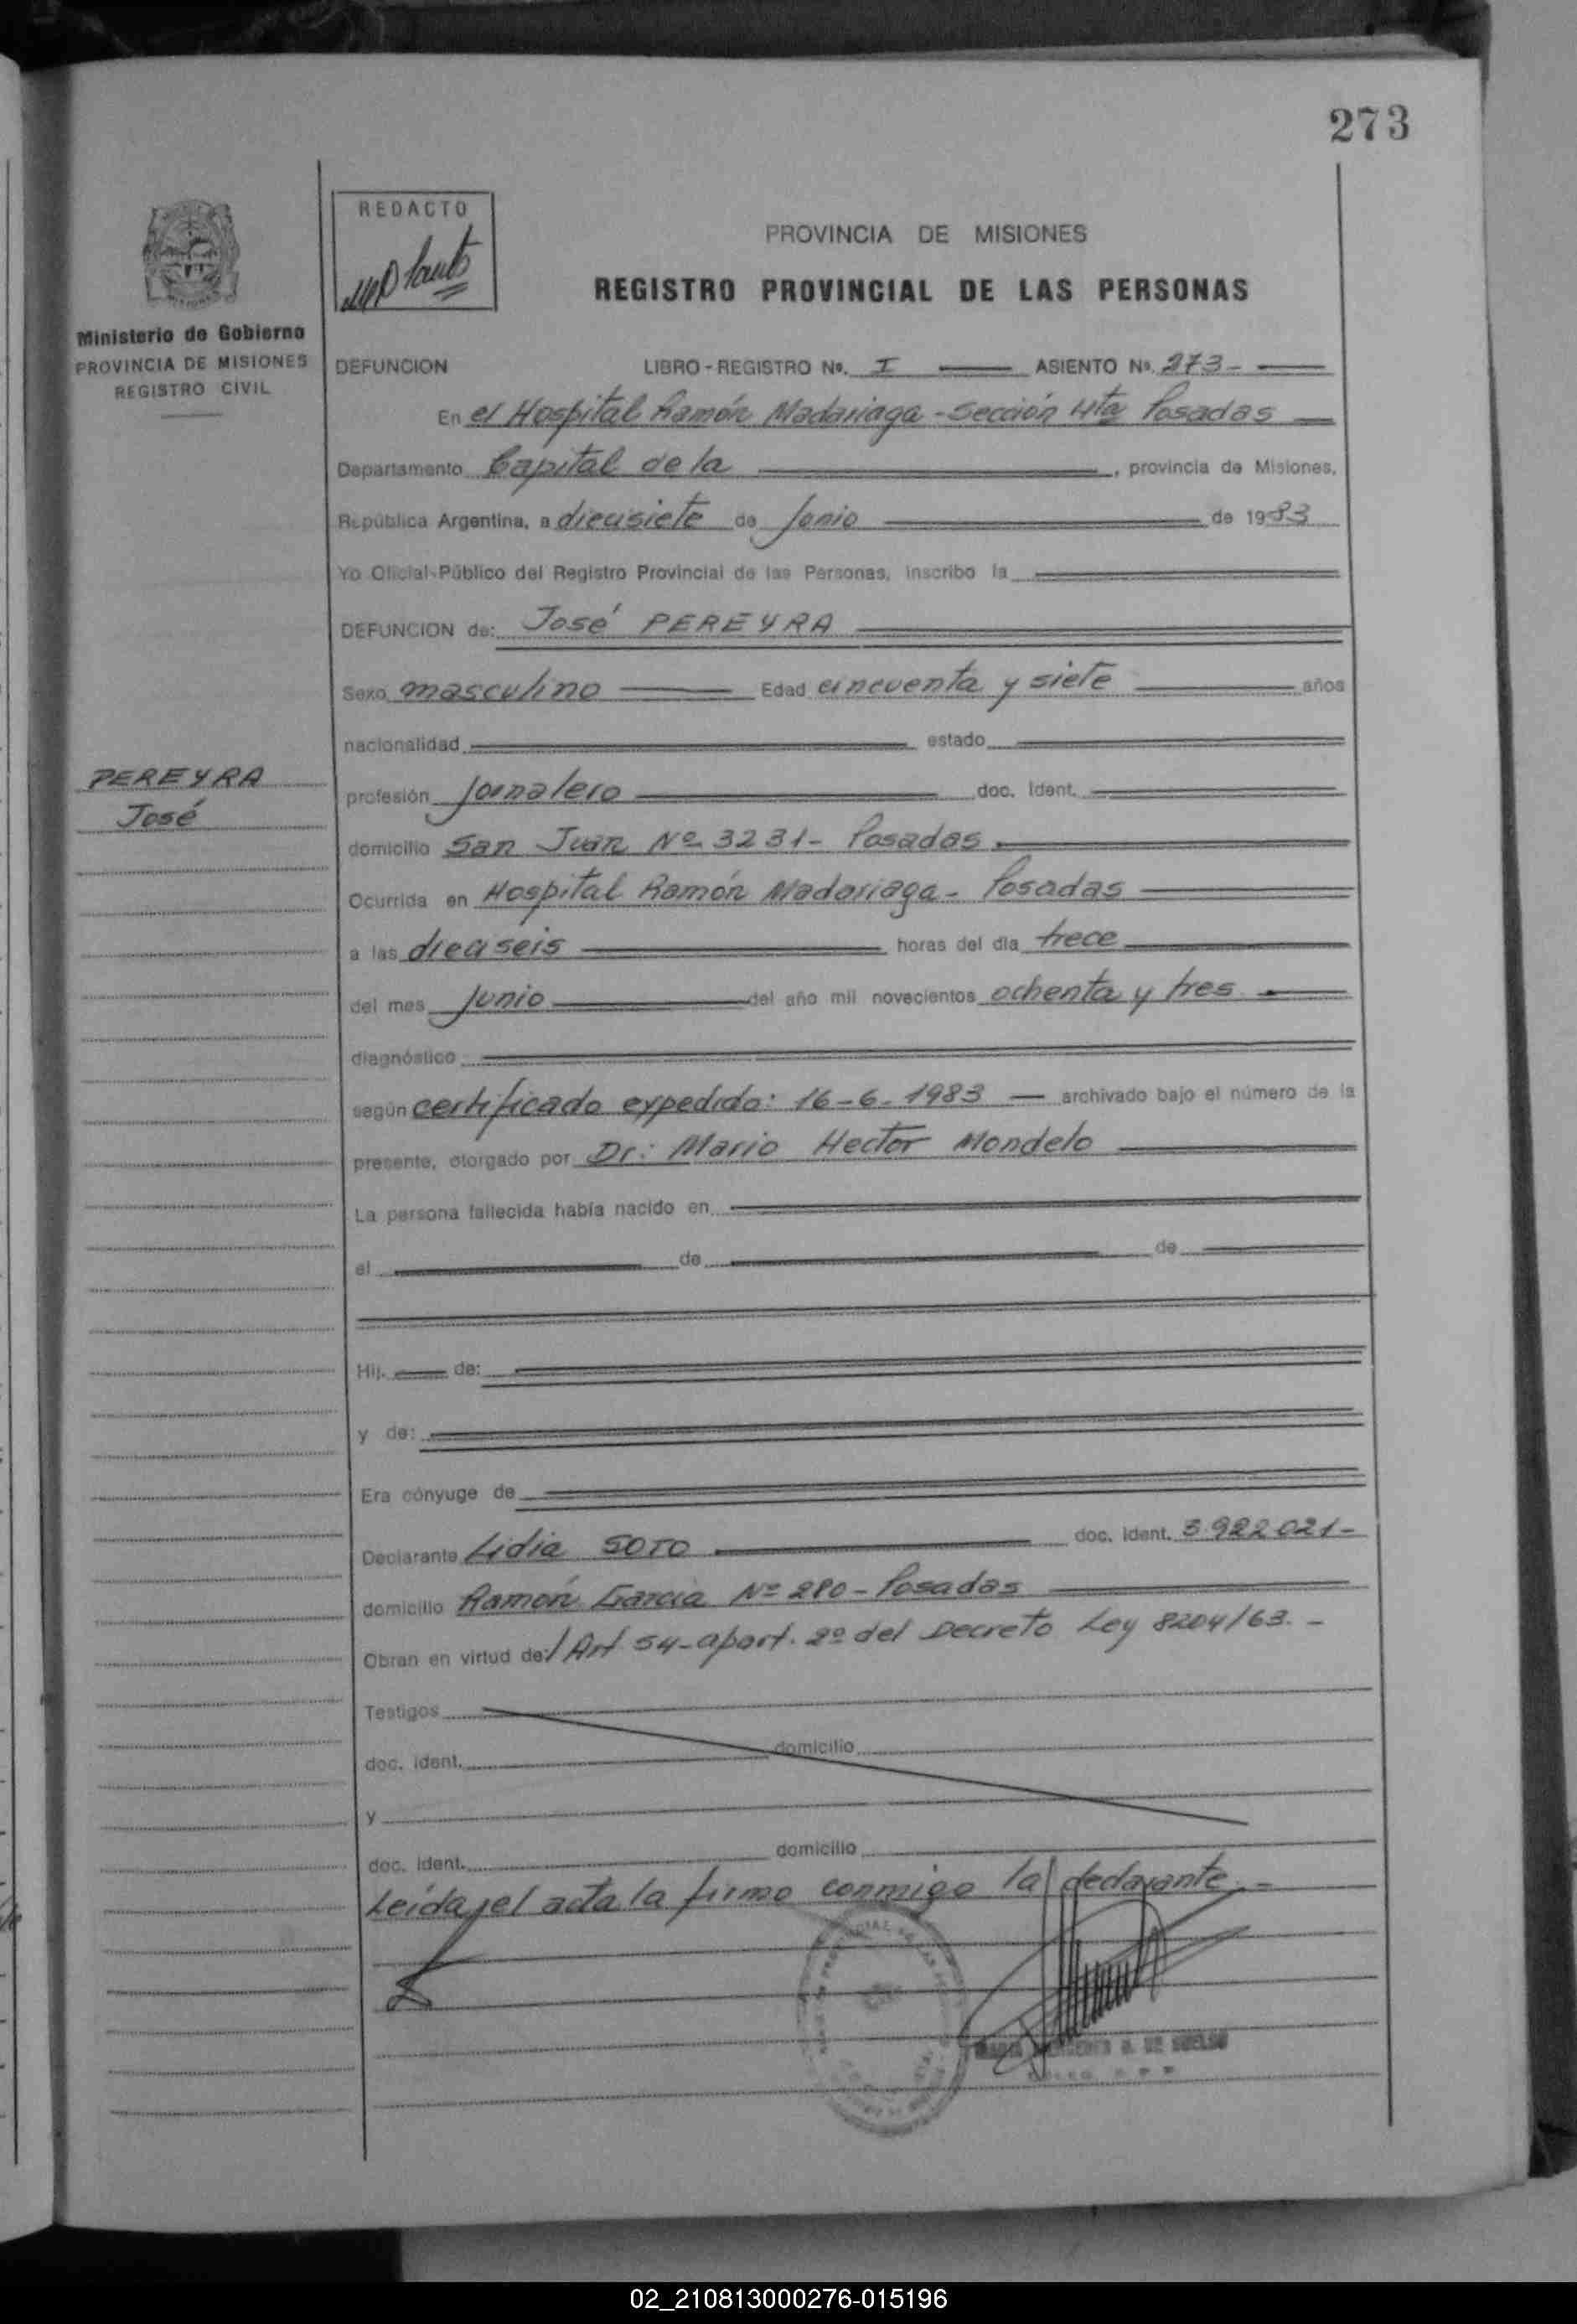 273
REDACTO
PROVINCIA DE MISIONES
REGISTRO PROVINCIAL DE LAS PERSONAS
Ministerio de Gobierno
PROVINCIA DE MISIONES
REGISTRO CIVIL
DEFUNCION LIBRO-REGISTRO Nº. I ASIENTO Nº. 273-
En el Hospital Ramón Madariaga - Sección 4ta Posadas
Departamento Capital de la , provincia de Misiones,
República Argentina, a diecisiete de Junio de 1983
Yo Oficial Público del Registro Provincial de las Personas, inscribo la
DEFUNCION de: José PEREYRA
Sexo masculino Edad cincuenta y siete años
nacionalidad estado
PEREYRA
José
profesión Jornalero doc. Ident.
domicilio San Juan Nº 3231- Posadas
Ocurrida en Hospital Ramón Madariaga - Posadas
a las dieciseis horas del día trece
del mes Junio del año mil novecientos ochenta y tres
diagnóstico
según certificado expedido: 16-6-1983 archivado bajo el número de la
presente, otorgado por Dr: Mario Hector Mondelo
La persona fallecida había nacido en
el de de
Hij. de:
y de:
Era cónyuge de
Declarante Lidia SOTO doc. Ident. 3.922.021-
domicilio Ramón García Nº 280- Posadas
Obran en virtud de: Art 54-apart. 2º del Decreto Ley 8204/63.-
Testigos
doc. ident. domicilio
y
doc. ident. domicilio
Leída el acta la firma conmigo la declarante.-
02_210813000276-015196